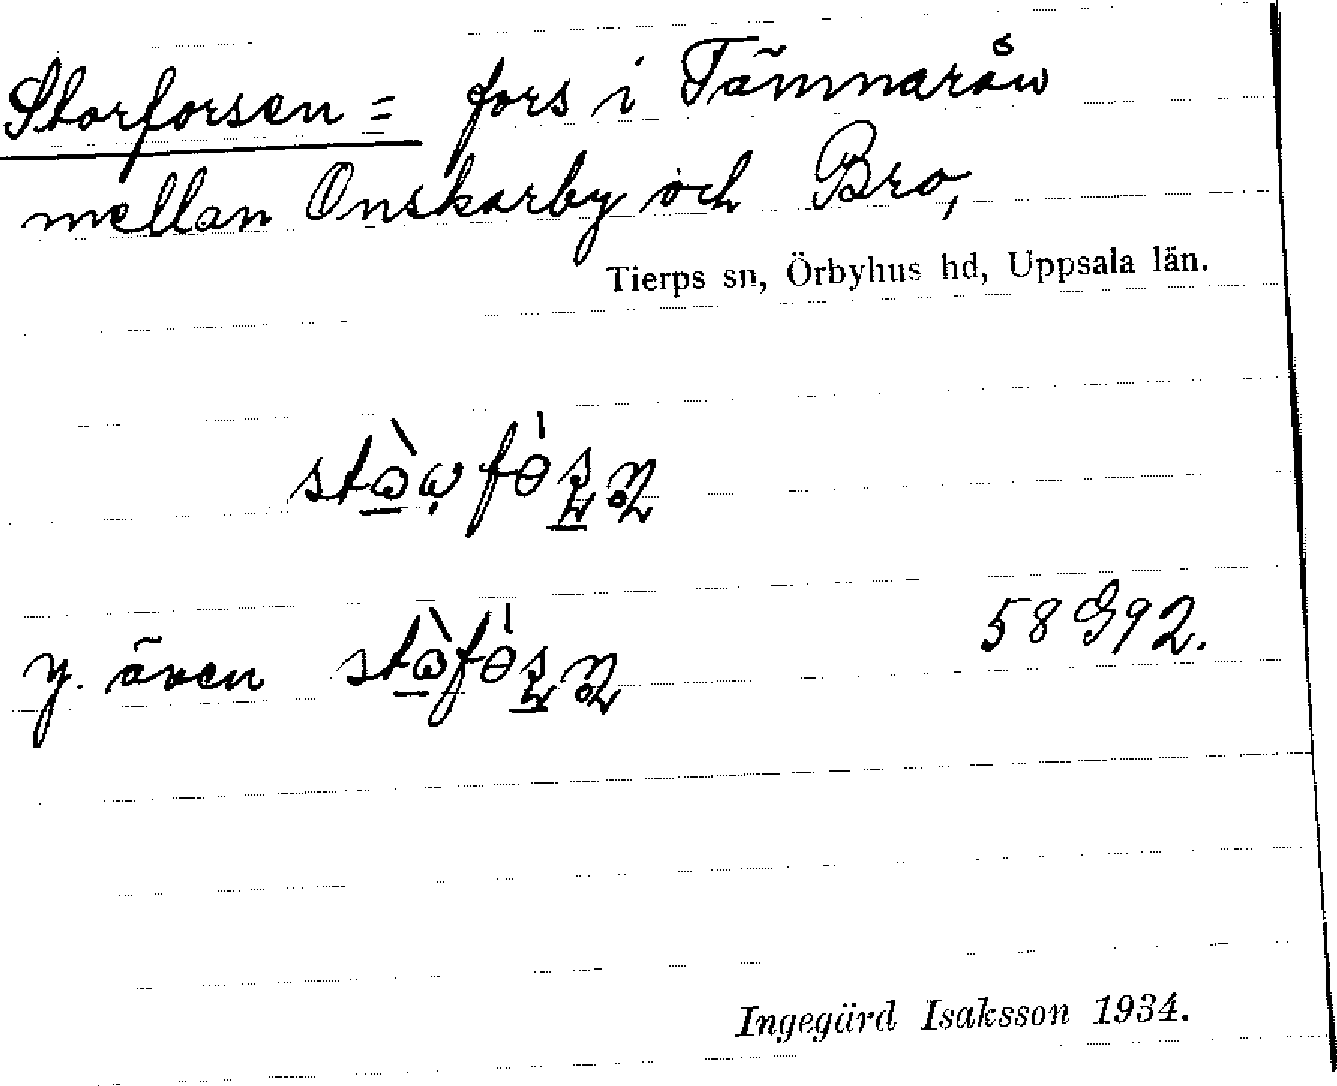 Storforsen = fors i Tämnarån
mellan Onskarby och Bro,
Tierps sn, Örbyhus hd, Uppsala län.
y. även
58 G92.
Ingegärd Isaksson 1934.